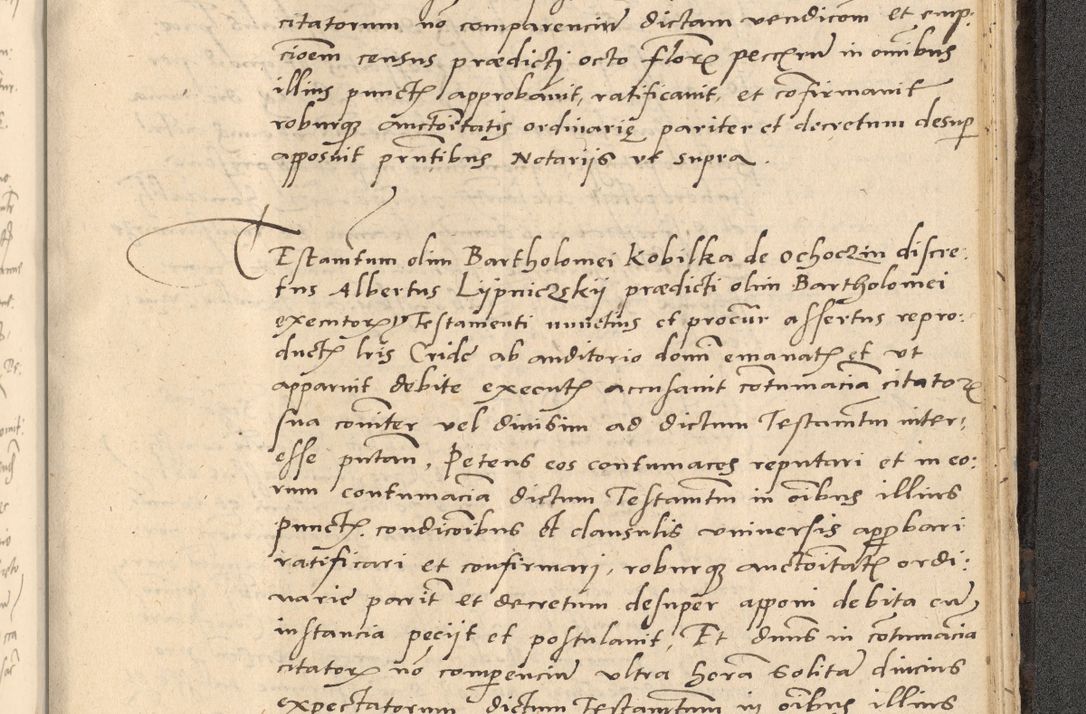 citatorum nõ comparenciuȝ dictam vendicom et emp:
cioem census prædicti octo floreȝ pecc̃arȝ in omĩbus
illius punctȝ approbauit, ratificauit, et cõfirmauit
roburqȝ auctoritatis ordinarię pariter et decretum desup
apposuit pñtibus Notarijs vt supra.
Testamẽtum olim Bartholomei Kobilka de Ochoczin discre:
tus Albertus Lÿpniczskij prædicti olim Bartholomei
executorȝ Testamenti et assertus repro:
ductȝ lr̃is Cride ab auditorio domĩ emanatȝ et vt
apparuit debite executȝ accusauit cõtumaciã citatorȝ
sua cõniter vel diuisim ad dictum Testamẽtũ inter:
esse putañ, Petens eos contumaces reputari et in eo:
rum contumaciã dictum Testamẽtũ in oĩbus illius
punctȝ, condicõibus et clausulis vniuersis approbari
ratificari et confirmari, roburqȝ auctoĩtatȝ ordi:
narie parit̃ et decretum desuper apponi debita cũ
instancia peciit et postulauit, Et dñus in cõtumaciã
citatorȝ nõ comparenciuȝ vltra horã solitã diucius
expectatorum dictum Testamẽtum in oĩbus illius